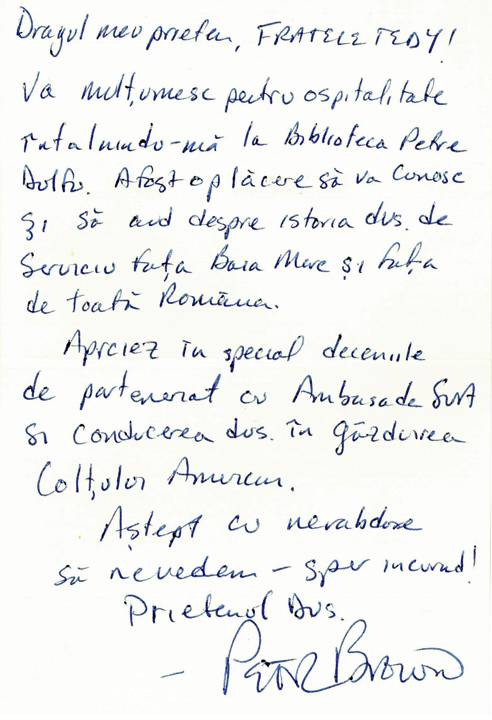 Dragul meu prieten, FRATELE TEDY!
Va mulțumesc pentru ospitalitate
întalnindu-mă la Biblioteca Petre
Dulfu. A fost o plăcere să va cunosc
și să aud despre istoria dvs. de
serviciu fața Baia Mare și fața
de toată România.
Apreciez în special deceniile
de parteneriat cu Ambasada SUA
si conducerea dvs. în găzduirea
Colțului American.
Aștept cu nerabdare
să ne vedem – sper incurand!
Prietenul Dvs.
– Peter Brown